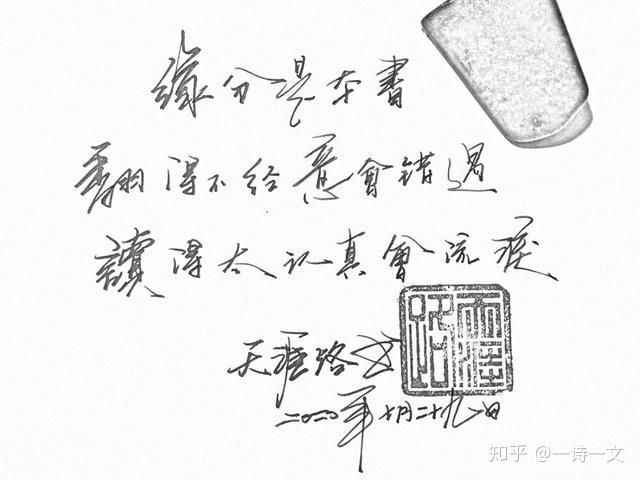 緣分是本書
翻得不经意會錯過
讀得太认真會流淚
天涯路书
二〇二〇年七月二十九日
天涯路
知乎 @一诗一文